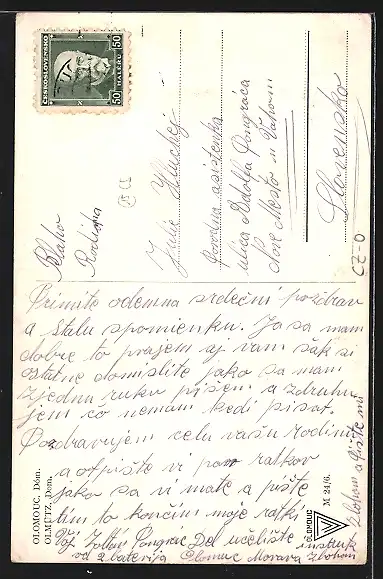 ČESKOSLOVENSKO
50 HALÉŘŮ 50
Blaho
Rodina
Julie Hluchej
Porodna asistentka
ulica Adolfa Pongráca
Nove Mesto n Vahom
Slovensko
CZ-0
Primite odemna srdečni pozdrav
a stalu spomienku. Ja sa mam
dobre to prajem aj vam šak si
ostatne domislite jako sa mam
zjednu ruku pišem a zdruhu
jem co nemam kedi pisat.
Pozdravujem celu vašu rodinu
a otpište vi par ratkov
jako sa vi mate a pište
tim to končim moje ratki
Váj Pongrac Da učeliště
od 2 baterija Olomouc Morava
Zbohom
Zbohom a Pište mi
OLOMOUC, Dóm.
OLMÜTZ, Dom.
M 24/6.
OLOMOUC